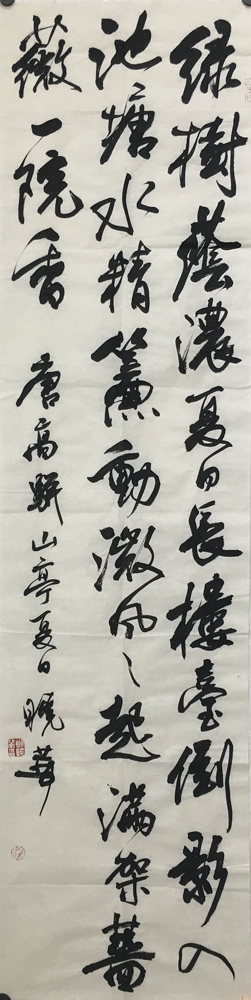 绿樹蔭濃夏日長樓臺倒影入
池塘水精簾動微風〻起满架薔
薇一院香 唐高駢山亭夏日 曉華